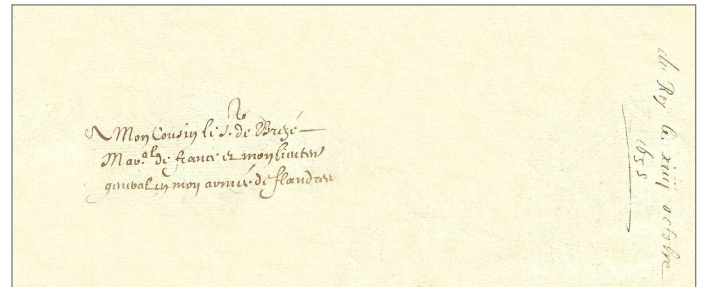 A
Mon Cousin le S. de Brezé —
Mar.al de france et mon lieuten
genral en mon armée de flandres
du Roy le xiiij octobre
1635